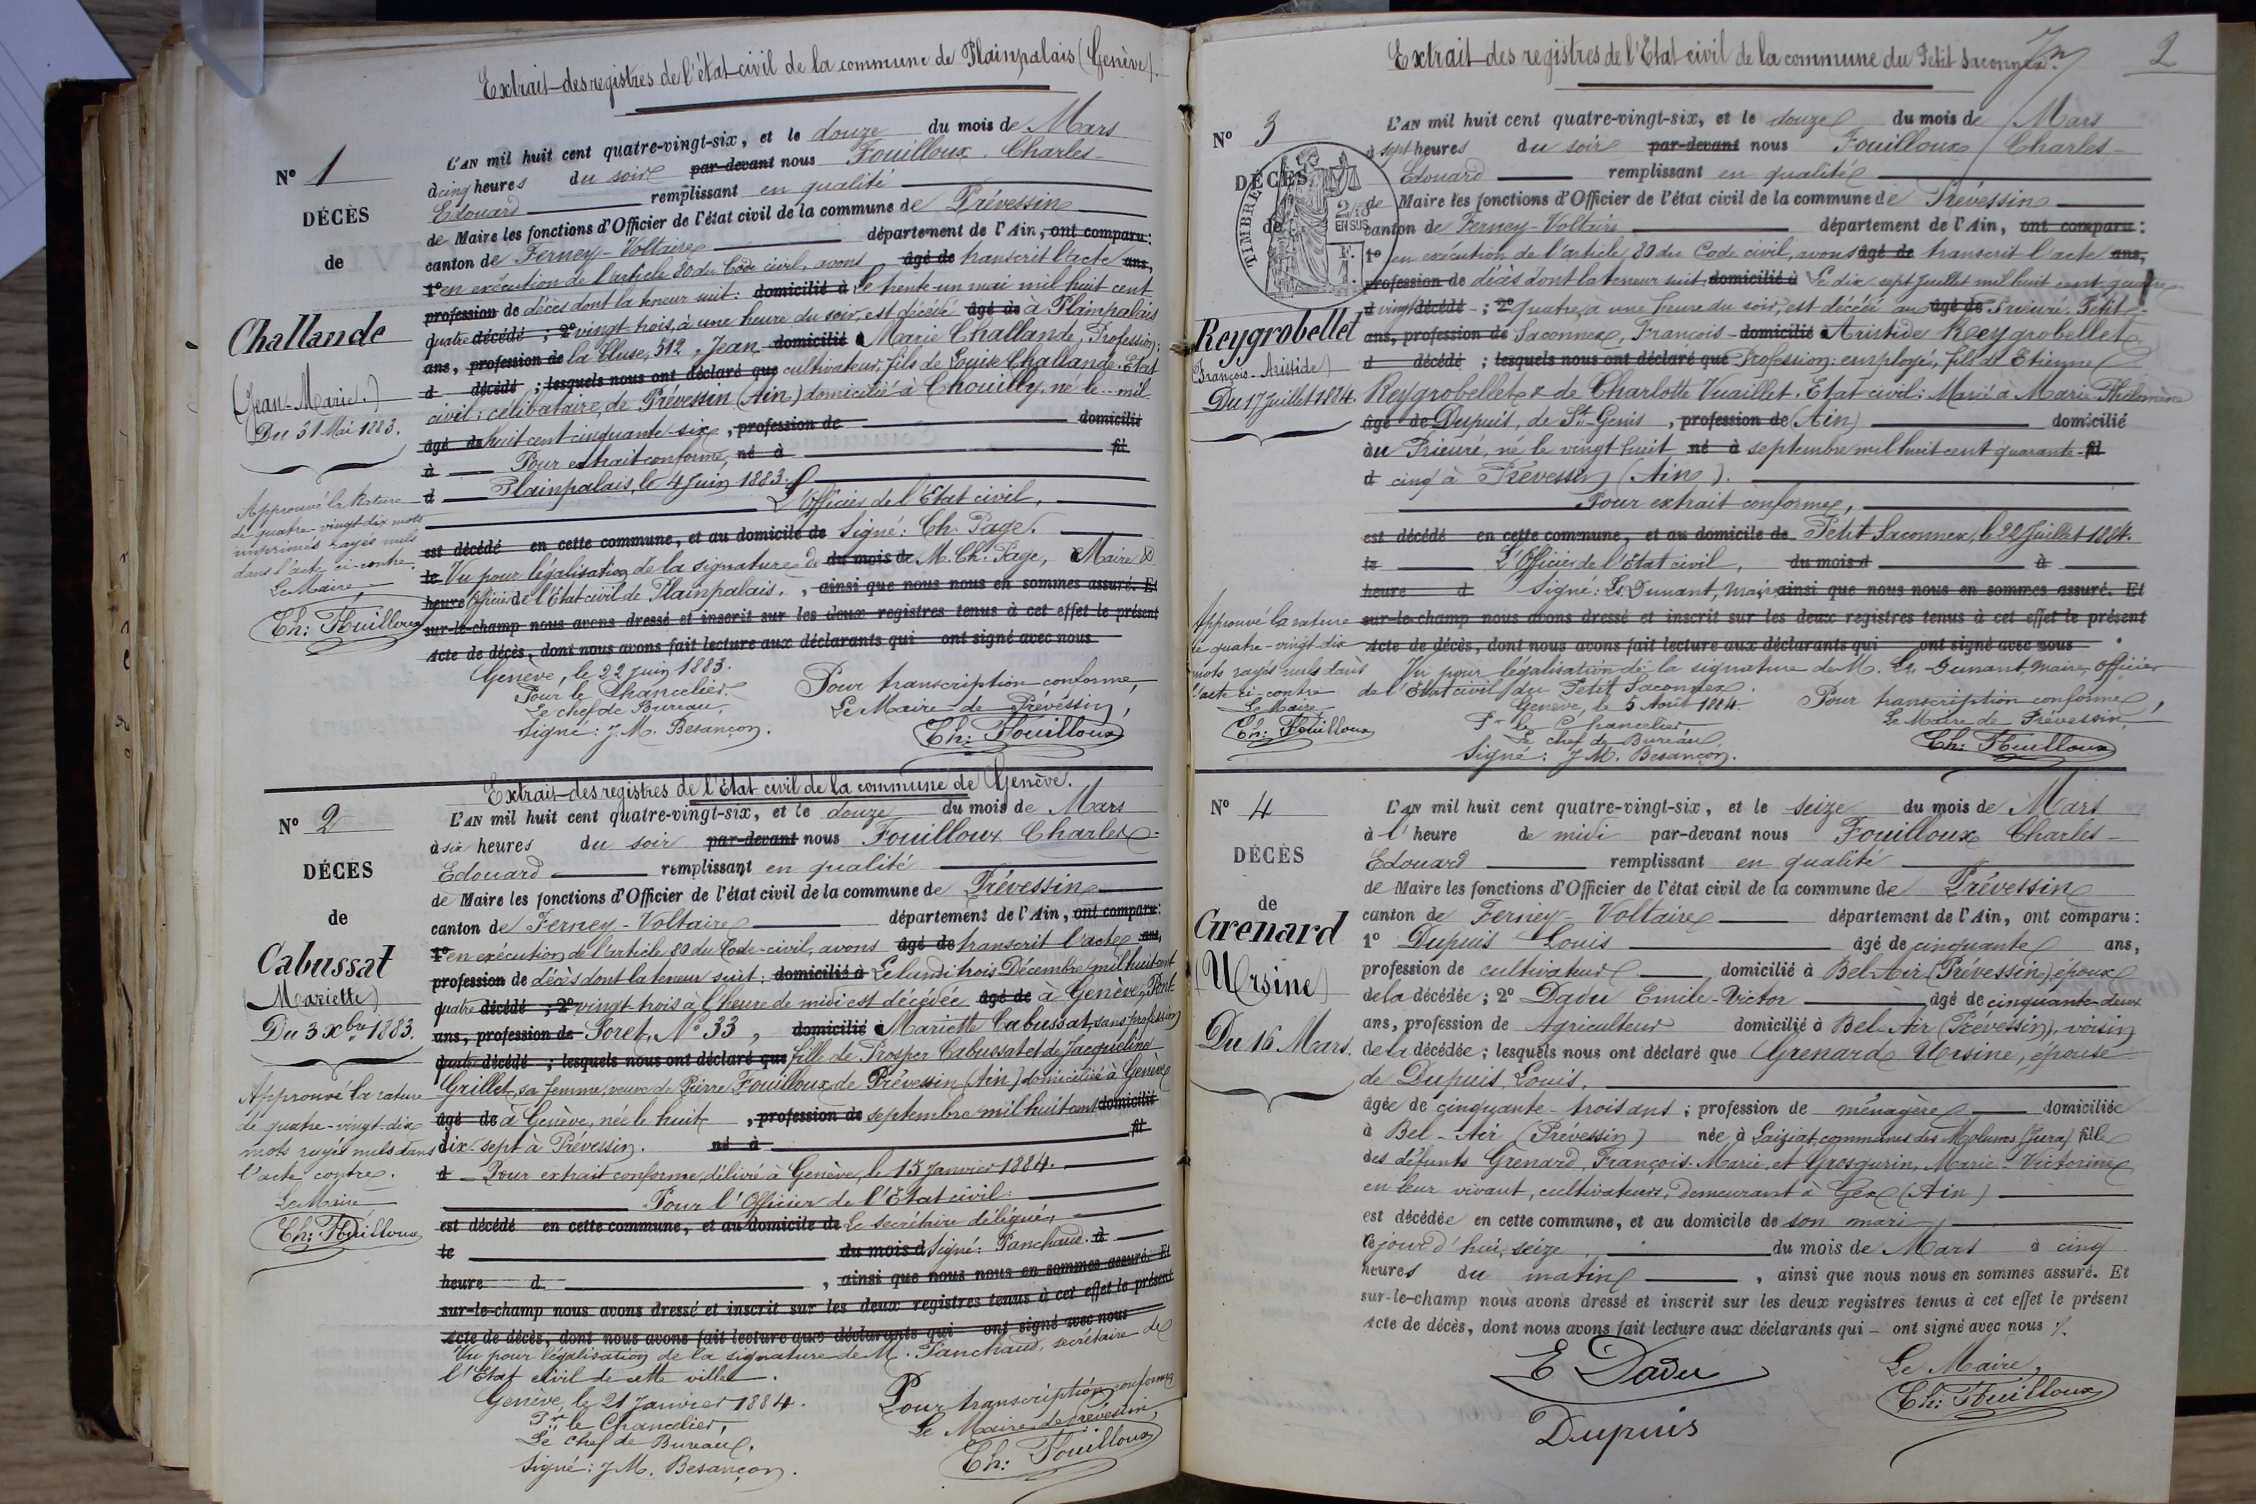 Extrait des registres de l'état civil de la commune de Plainpalais (Genève).
N° 1
DÉCÈS
de
Challande
(Jean-Marie.)
Du 31 Mai 1883.
Approuvé la rature
de quatre-vingt-dix mots
imprimés rayés nuls
dans l'acte ci-contre.
Le Maire,
Ch: Fouilloux
L'AN mil huit cent quatre-vingt-six, et le douze du mois de Mars
à cinq heures du soir par-devant nous Fouilloux Charles-
Edouard remplissant en qualité
de Maire les fonctions d'Officier de l'état civil de la commune de Prévessin
canton de Ferney-Voltaire département de l'Ain, ont comparu:
1° en exécution de l'article 80 du Code civil, avons âgé de transcrit l'acte ans,
profession de décès dont la teneur suit: domicilié à Le trente-un mai mil huit cent
quatre décédé ; 2° vingt trois, à une heure du soir, est décédé âgé de à Plainpalais
ans, profession de la Cluse, 512, Jean domicilié à Marie Challande, Profession:
d décédé ; lesquels nous ont déclaré que cultivateur, fils de Louise Challande. Etat
civil: célibataire, de Prévessin (Ain) domicilié à Chouilly, né le mil
âgé de huit cent cinquante-six, profession de domicilié
à Pour extrait conforme, né à fil
d Plainpalais, le 4 Juin 1883.
L'Officier de l'Etat civil,
est décédé en cette commune, et au domicile de Signé: Ch. Page.
le Vu pour légalisation de la signature de du mois de M. Ch. Page, à Maire &
heure Officier de l'Etat civil de Plainpalais. , ainsi que nous nous en sommes assuré. Et
sur-le-champ nous avons dressé et inscrit sur les deux registres tenus à cet effet le présent
acte de décès, dont nous avons fait lecture aux déclarants qui ont signé avec nous
Genève, le 22 Juin 1883.
Pour le Chancelier:
Le chef de Bureau,
Signé: J. M. Besançon.
Pour transcription conforme,
Le Maire de Prévessin,
Ch: Fouilloux
Extrait des registres de l'Etat civil de la commune de Genève.
N° 2
DÉCÈS
de
Cabussat
(Mariette)
Du 3 Xbre 1883.
Approuvé la rature
de quatre-vingt-dix
mots rayés nuls dans
l'acte contre.
Le Maire
Ch: Fouilloux
L'AN mil huit cent quatre-vingt-six, et le douze du mois de Mars
à six heures du soir par-devant nous Fouilloux Charles-
Edouard remplissant en qualité
de Maire les fonctions d'Officier de l'état civil de la commune de Prévessin
canton de Ferney-Voltaire département de l'Ain, ont comparu:
1° en exécution de l'article 80 du Code-civil, avons âgé de transcrit l'acte ans,
profession de décès dont la teneur suit: domicilié à Le lundi trois Décembre mil huit cent
quatre décédé ; 2° vingt-trois à l'heure de midi est décédée âgé de à Genève, Pont
ans, profession de Soret, N° 33, domicilié à Mariette Cabussat, sans profession
décédé ; lesquels nous ont déclaré que fille de Prosper Cabussat et de Jacqueline
Grillet, sa femme, veuve de Pierre Fouilloux, de Prévessin (Ain) domiciliée à Genève
âgé de à Genève, née le huit , profession de septembre mil huit cent domicilié
dix-sept à Prévessin. né à fil
d Pour extrait conforme, délivré à Genève, le 15 Janvier 1884.
Pour l'Officier de l'Etat civil:
est décédé en cette commune, et au domicile de Le secrétaire délégué,
le du mois d Signé: Panchaud. à
heure d , ainsi que nous nous en sommes assuré. Et
sur-le-champ nous avons dressé et inscrit sur les deux registres tenus à cet effet le présent
acte de décès, dont nous avons fait lecture aux déclarants qui ont signé avec nous
Vu pour légalisation de la signature de M. Panchaud, secrétaire de
l'Etat civil de cette ville.
Genève, le 21 Janvier 1884.
Pr le Chancelier,
Le chef de Bureau,
Signé: J. M. Besançon.
Pour transcription conforme
Le Maire de Prévessin,
Ch: Fouilloux
Extrait des registres de l'Etat civil de la commune du Petit Saconnex.
2
N° 3
DÉCÈS
de
TIMBRE
2/10
EN SUS
Reygrobellet
(François-Aristide)
Du 17 Juillet 1884.
Approuvé la rature
de quatre-vingt dix
mots rayés nuls dans
l'acte ci-contre
Le Maire,
Ch: Fouilloux
L'AN mil huit cent quatre-vingt-six, et le douze du mois de Mars
à sept heures du soir par-devant nous Fouilloux Charles-
Edouard remplissant en qualité
de Maire les fonctions d'Officier de l'état civil de la commune de Prévessin
canton de Ferney-Voltaire département de l'Ain, ont comparu:
1° en exécution de l'article 80 du Code civil, avons âgé de transcrit l'acte ans,
profession de décès dont la teneur suit, domicilié à Le dix sept Juillet mil huit cent quatre
d vingt décédé ; 2° quatre, à une heure du soir, est décédé au âgé de Prieuré Petit-
ans, profession de Saconnex, François- domicilié Aristide Reygrobellet,
d décédé ; lesquels nous ont déclaré que Profession: employé, fils de Etienne
Reygrobellet & de Charlotte Vuaillet. Etat civil: Marié à Marie Philomène
âgé de Dupuis, de St Genis , profession de (Ain) domicilié
au Prieuré, né le vingt huit né à septembre mil huit cent quarante- fil
d cinq à Prévessin (Ain).
Pour extrait conforme,
est décédé en cette commune, et au domicile de Petit Saconnex, le 22 Juillet 1884.
le L'Officier de l'Etat civil, du mois d à
heure d Signé: Ls Dunant, maire ainsi que nous nous en sommes assuré. Et
sur-le-champ nous avons dressé et inscrit sur les deux registres tenus à cet effet le présent
acte de décès, dont nous avons fait lecture aux déclarants qui ont signé avec nous
Vu pour légalisation de la signature de M. Ls Dunant, maire, officier
de l'Etat civil du Petit Saconnex.
Genève, le 5 Août 1884
Pr le Chancelier
Le chef de Bureau
Signé: J M. Besançon.
Pour transcription conforme,
Le Maire de Prévessin,
Ch: Fouilloux
N° 4
DÉCÈS
de
Grenard
(Ursine)
Du 16 Mars.
L'AN mil huit cent quatre-vingt-six, et le seize du mois de Mars
à l'heure de midi par-devant nous Fouilloux Charles-
Edouard remplissant en qualité
de Maire les fonctions d'Officier de l'état civil de la commune de Prévessin
canton de Ferney-Voltaire département de l'Ain, ont comparu:
1° Dupuis Louis âgé de cinquante ans,
profession de cultivateur domicilié à Bel-Air (Prévessin) époux
de la décédée; 2° Dadu Emile-Victor âgé de cinquante-deux
ans, profession de Agriculteur domicilié à Bel-Air (Prévessin), voisin
de la décédée; lesquels nous ont déclaré que Grenard Ursine, épouse
de Dupuis, Louis.
âgée de cinquante-trois ans; profession de ménagère domiciliée
à Bel-Air (Prévessin) née à Laiziat, commune des Molunes (Jura) fille
des défunts Grenard, François-Marie, et Grosgurin, Marie-Victorine
en leur vivant, cultivateurs, demeurant à Gex (Ain)
est décédée en cette commune, et au domicile de son mari,
ce jourd'hui, seize du mois de Mars à cinq
heures du matin , ainsi que nous nous en sommes assuré. Et
sur-le-champ nous avons dressé et inscrit sur les deux registres tenus à cet effet le présent
acte de décès, dont nous avons fait lecture aux déclarants qui ont signé avec nous
E Dadu
Dupuis
Le Maire,
Ch: Fouilloux